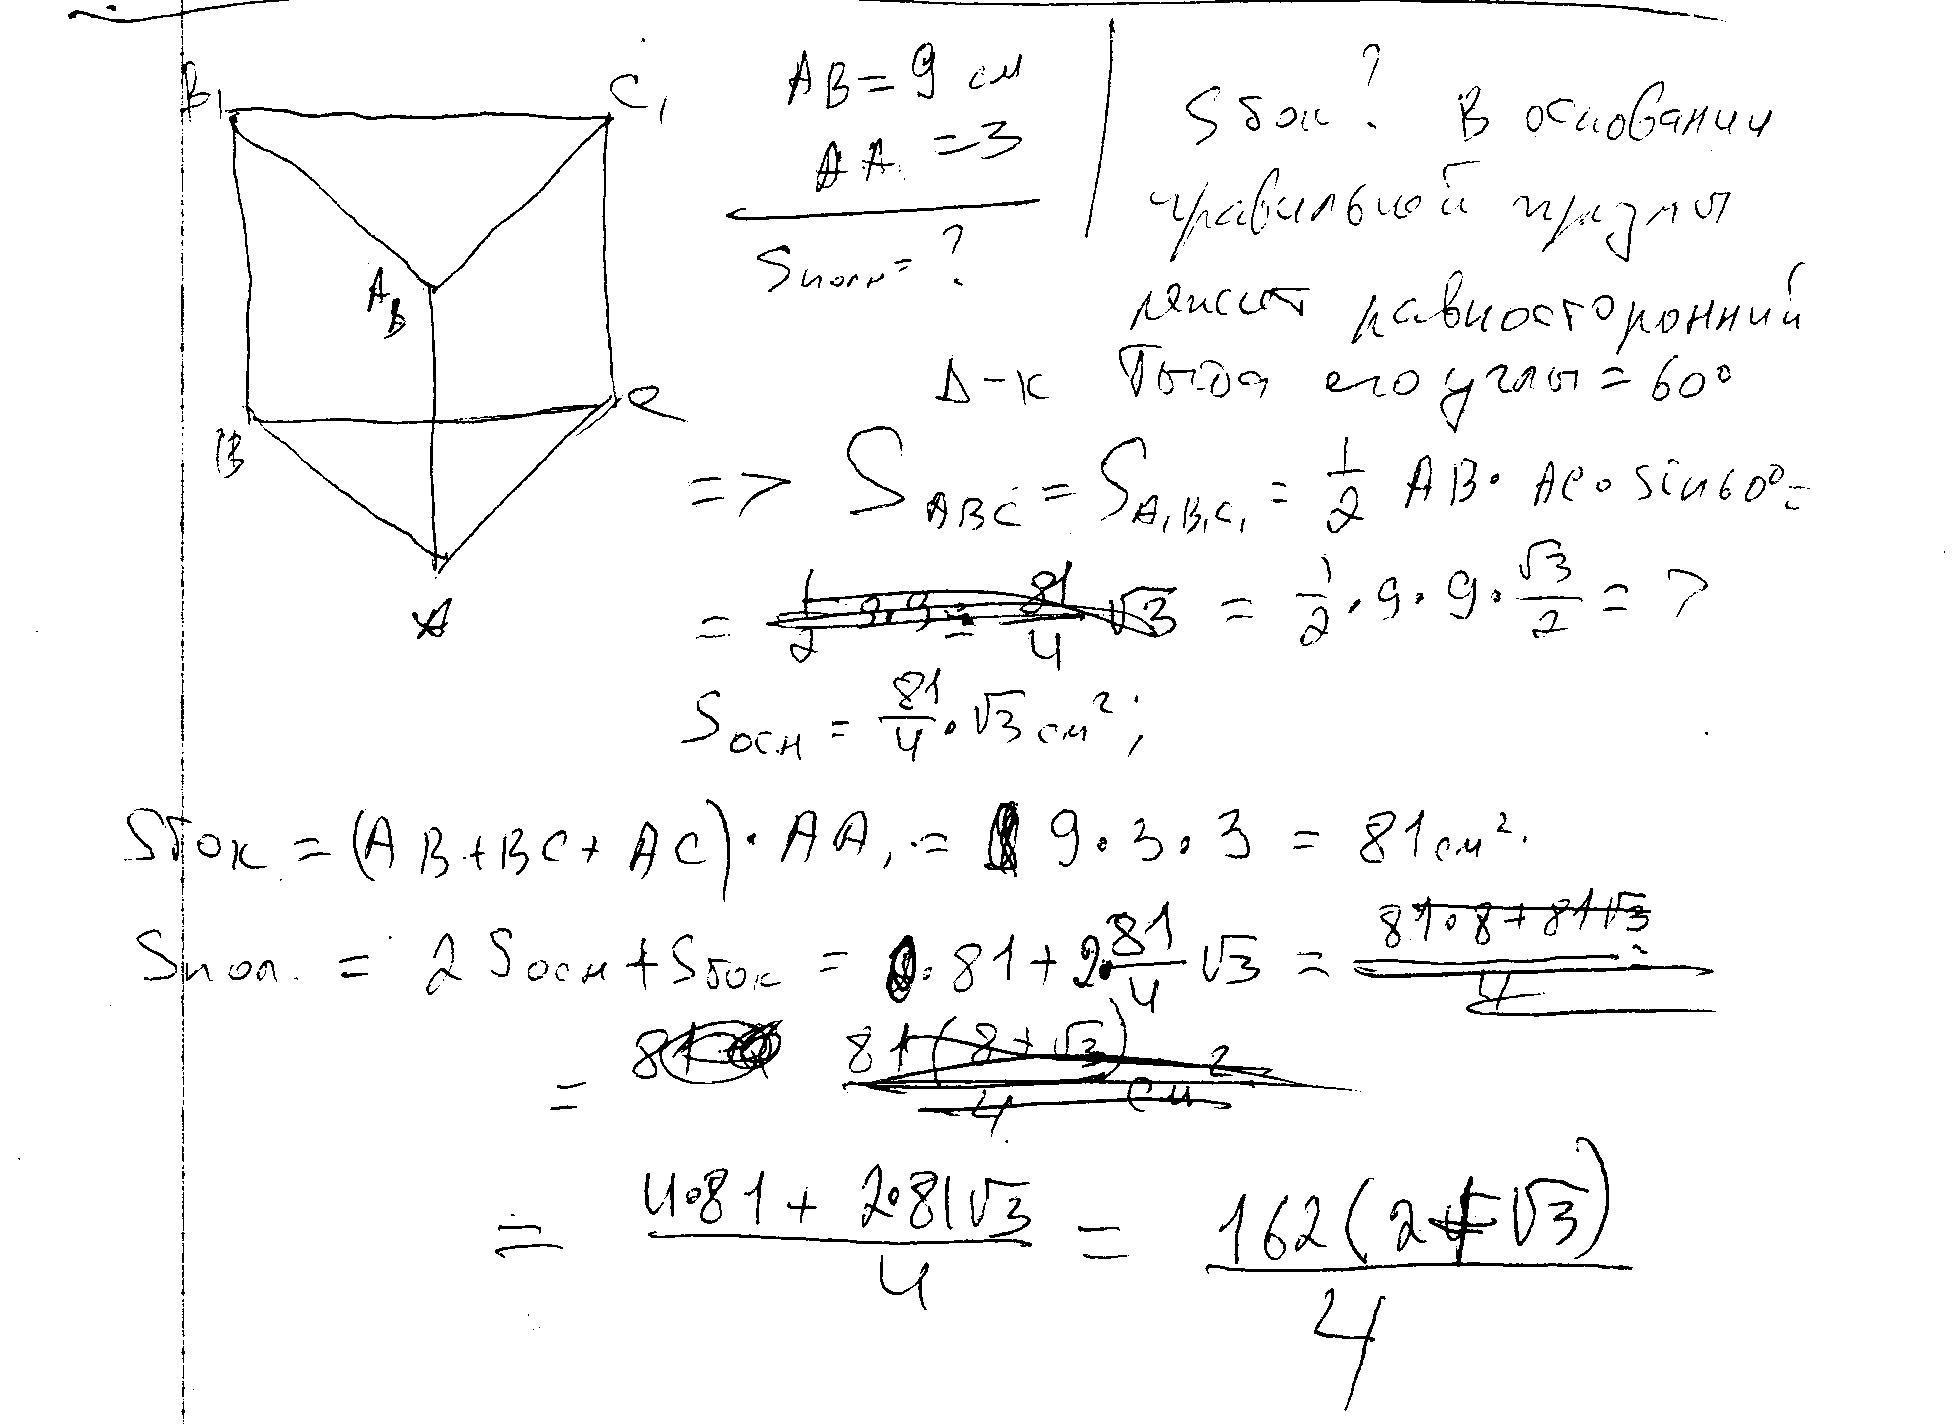 B₁
C₁
A
B
B
C
A
AB = 9 см
AA₁ = 3
Sполн = ?
Sбок ? В основании
правильной призмы
лежит равносторонний
Δ-к Тогда его углы = 60°
=> S ABC = S A₁B₁C₁ = 1/2 AB · AC · sin60° =
= 1/2 9·9 = 81/4 √3 = 1/2 · 9 · 9 · √3/2 = >
Sосн = 81/4 · √3 см²;
Sбок = (AB + BC + AC) · AA₁ = 9 · 3 · 3 = 81 см².
Sпол. = 2 Sосн + Sбок = · 81 + 2 · 81/4 √3 = 81·8+81√3/4 =
= 81(8+√3)/4 см²
= 4·81 + 2·81√3/4 = 162(2+√3)/4